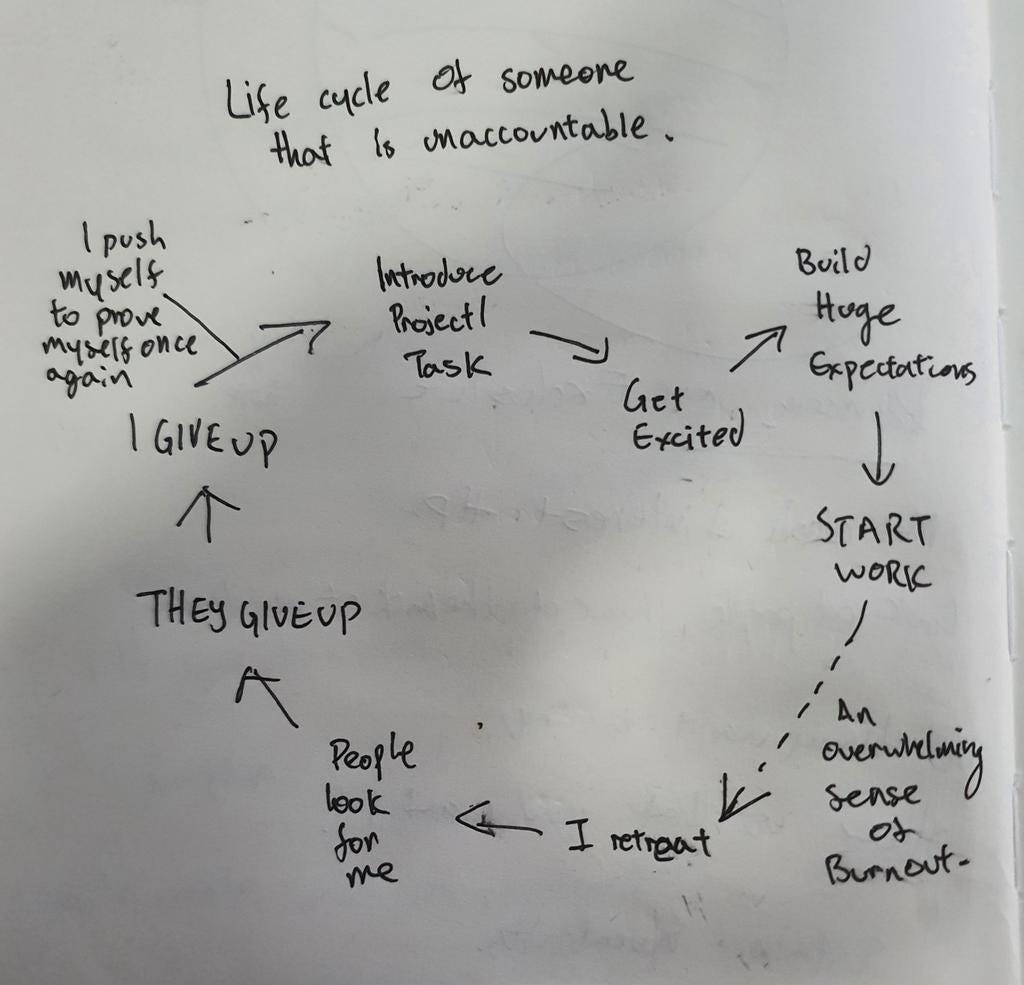 Life cycle of someone
that is unaccountable.
I push
myself
to prove
myself once
again
Introduce
Project/
Task
Get
Excited
Build
Huge
Expectations
START
WORK
An
overwhelming
sense
of
Burnout-
I retreat
People
look
for
me
THEY GIVE UP
I GIVE UP